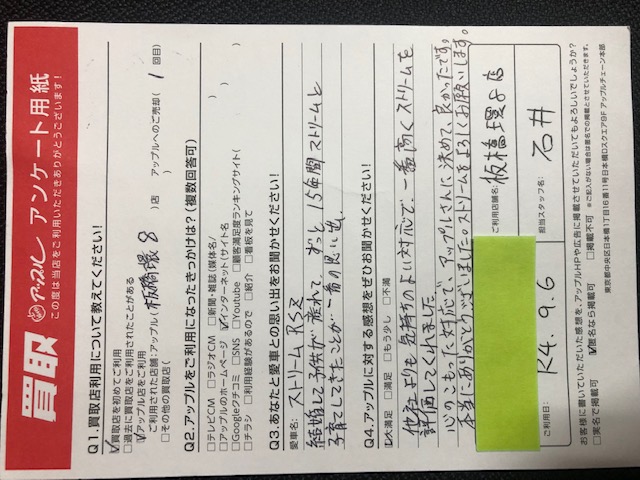 買取 アップル アンケート用紙
この度は当店をご利用いただきありがとうございます!
Q1.買取店利用について教えてください!
☑買取店を初めてご利用
□過去に買取店をご利用されたことがある
☑アップル店をご利用
ご利用された店舗:アップル( 板橋環8 )店 アップルへのご売却( 1 回目)
□その他の買取店( )
Q2.アップルをご利用になったきっかけは?(複数回答可)
□テレビCM □ラジオCM □新聞・雑誌(媒体名/ )
□アップルのホームページ ☑インターネット(サイト名 )
□Googleクチコミ □SNS □Youtube □顧客満足度ランキングサイト( )
□チラシ □利用経験があるので □紹介 □看板を見て
Q3.あなたと愛車との思い出をお聞かせください!
愛車名: ストリーム RSZ
結婚して子供が産れて、ずっと 15年間 ストリームと
子育てしてきたことが一番の思い出。
Q4.アップルに対する感想をぜひお聞かせください!
☑大満足 □満足 □もう少し □不満
他社よりも気持のよい対応で、一番高くストリームを
評価してくれました
心のこもった対応で、アップルさんに決めて、良かったです。
本当にありがとうございました。ストリームをよろしくお願いします。
ご利用店舗名: 板橋環8店
ご利用日: R4.9.6 担当スタッフ名: 石井
お客様に書いていただいた感想を、アップルHPや広告に掲載させていただいてもよろしいでしょうか?
□実名で掲載可 ☑匿名なら掲載可 □掲載不可 ※ご記入がない場合は匿名での掲載とさせていただきます。
東京都中央区日本橋1丁目16番11号日本橋Dスクエア8F アップルチェーン本部